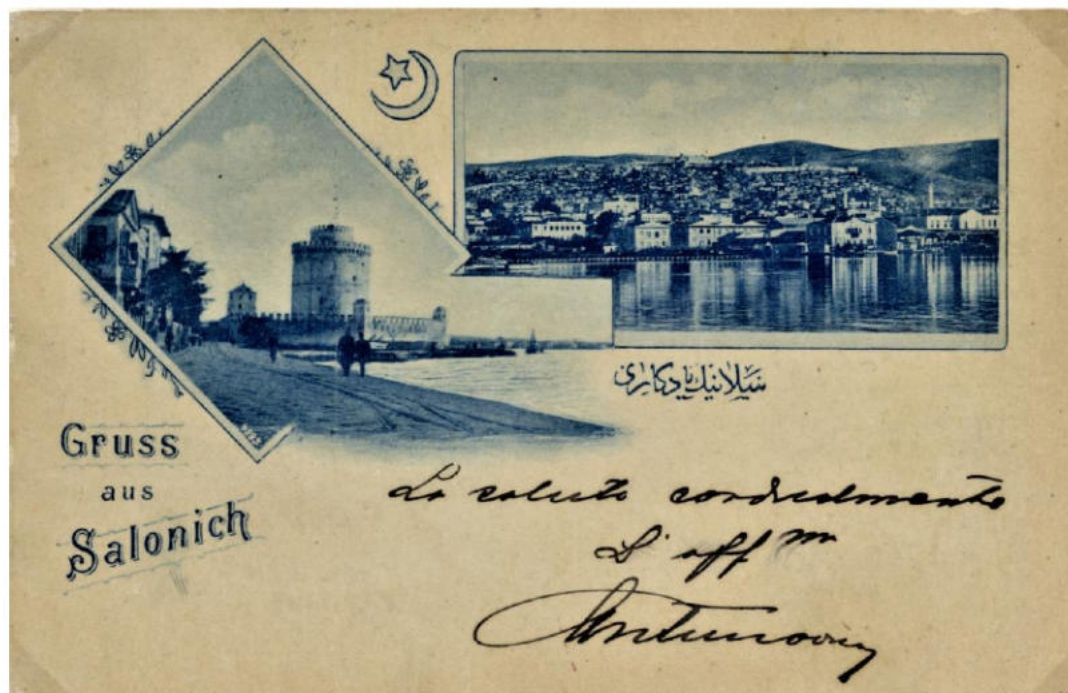 سلانيك يادكارى
Gruss
aus
Salonich
La saluto cordialmente
L' aff mo